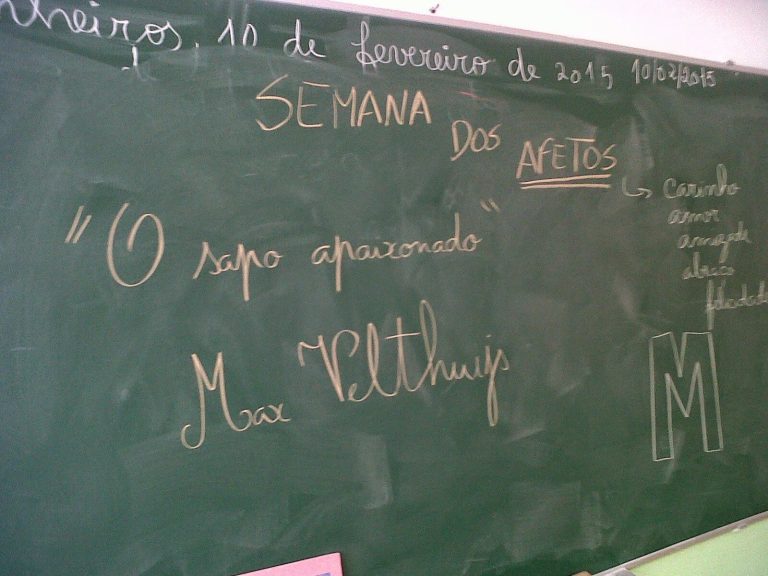 nheiros, 10 de fevereiro de 2015 10/02/2015
SEMANA DOS AFETOS
carinho
amor
amizade
abraço
felicidade
"O sapo apaixonado"
Max Velthuijs
M